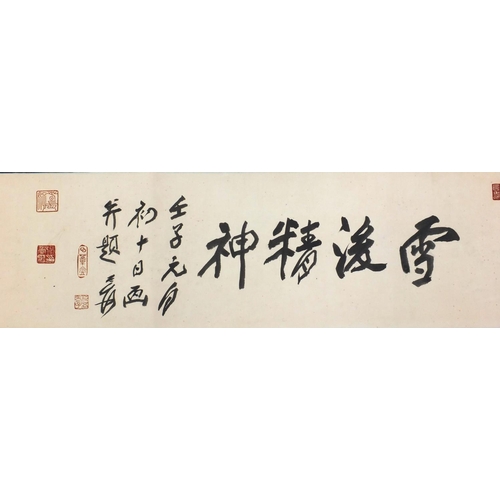 雪後精神
壬子元月
初十日画
并題 爰